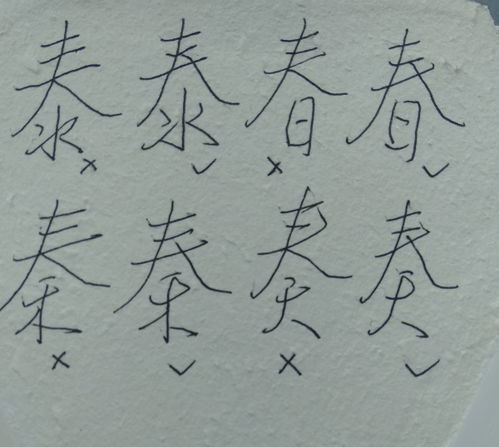 泰 泰 春 春
× ✓ × ✓
秦 秦 奏 奏
× ✓ × ✓